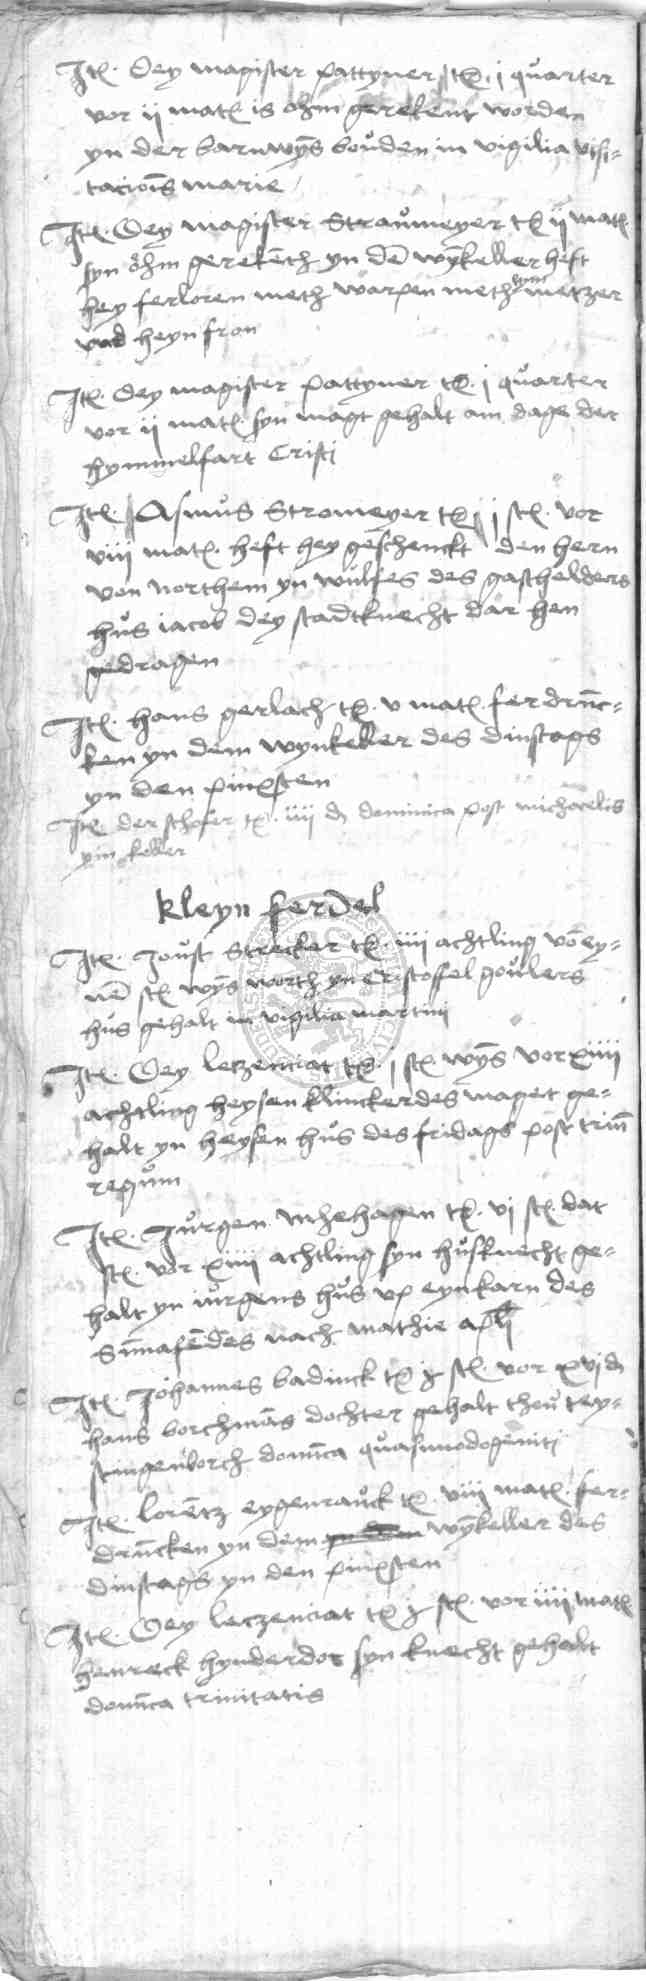 Itē. Dey magister pattyner tꝫ. j quarter
vor ij matꝫ is ohm gerekent worden
yn der barnwyß bouden in vigilia visi-
tacionis marie
Itē. Dey magister Straumeyer tꝫ ij matꝫ
syn öhm gerekēth yn dē wykeller heft
hey ferloren meth warpen meth hans metzer
vnd heyn fron
Itē. Dey magister pattyner tꝫ. j quarter
vor ij matꝫ. syn magt gehalt am dage der
hymmelfart Cristi
Itē. Asmus Stromeyer tꝫ ij stꝫ. vor
viij matꝫ. heft hey geschenckt den hern
von northem yn wulfes des gasthelders
hus iacob dey stadtknecht dar hen
gedragen
Itē. hans gerlach tꝫ. v matꝫ. ferdrūc-
ken yn dem wynkeller des dinstags
yn den pinxsten
Itē der schafer tꝫ. iiij d dominica post michaelis
ym keller
kleyn ferdel
Itē. Joust Strecker tꝫ. iiij achtling vō ey-
nē stꝫ wyß worth yn Cristoffel goulers
hus gehalt in vigilia martini
Itē. Dey letzenciat tꝫ. j stꝫ wyß vor xiiij
achtling heysen klinckerdes maget ge-
halt yn heysen huß des fridags post triū
regum
Itē. Jurgen vnhehagen tꝫ. vj stꝫ. dat
stꝫ. vor xiiij achtling syn husknecht ge-
halt yn iurgens huß vp eyn karn des
sūnafēdes nach mathie apli
Itē. Johannes badinck tꝫ ɉ stꝫ vor xvj d
hans borchmās dochter gehalt theu tey-
stingenborch domīca quasimodogeniti
Itē. lorētz eygenrauck tꝫ. viij matꝫ. fer-
drūcken yn dem wykeller des
dinstags yn den pinxsten
Itē. Dey letzenciat tꝫ ɉ stꝫ. vor iiij matꝫ.
henreck hynderdor syn knecht gehalt
domīca trinitatis